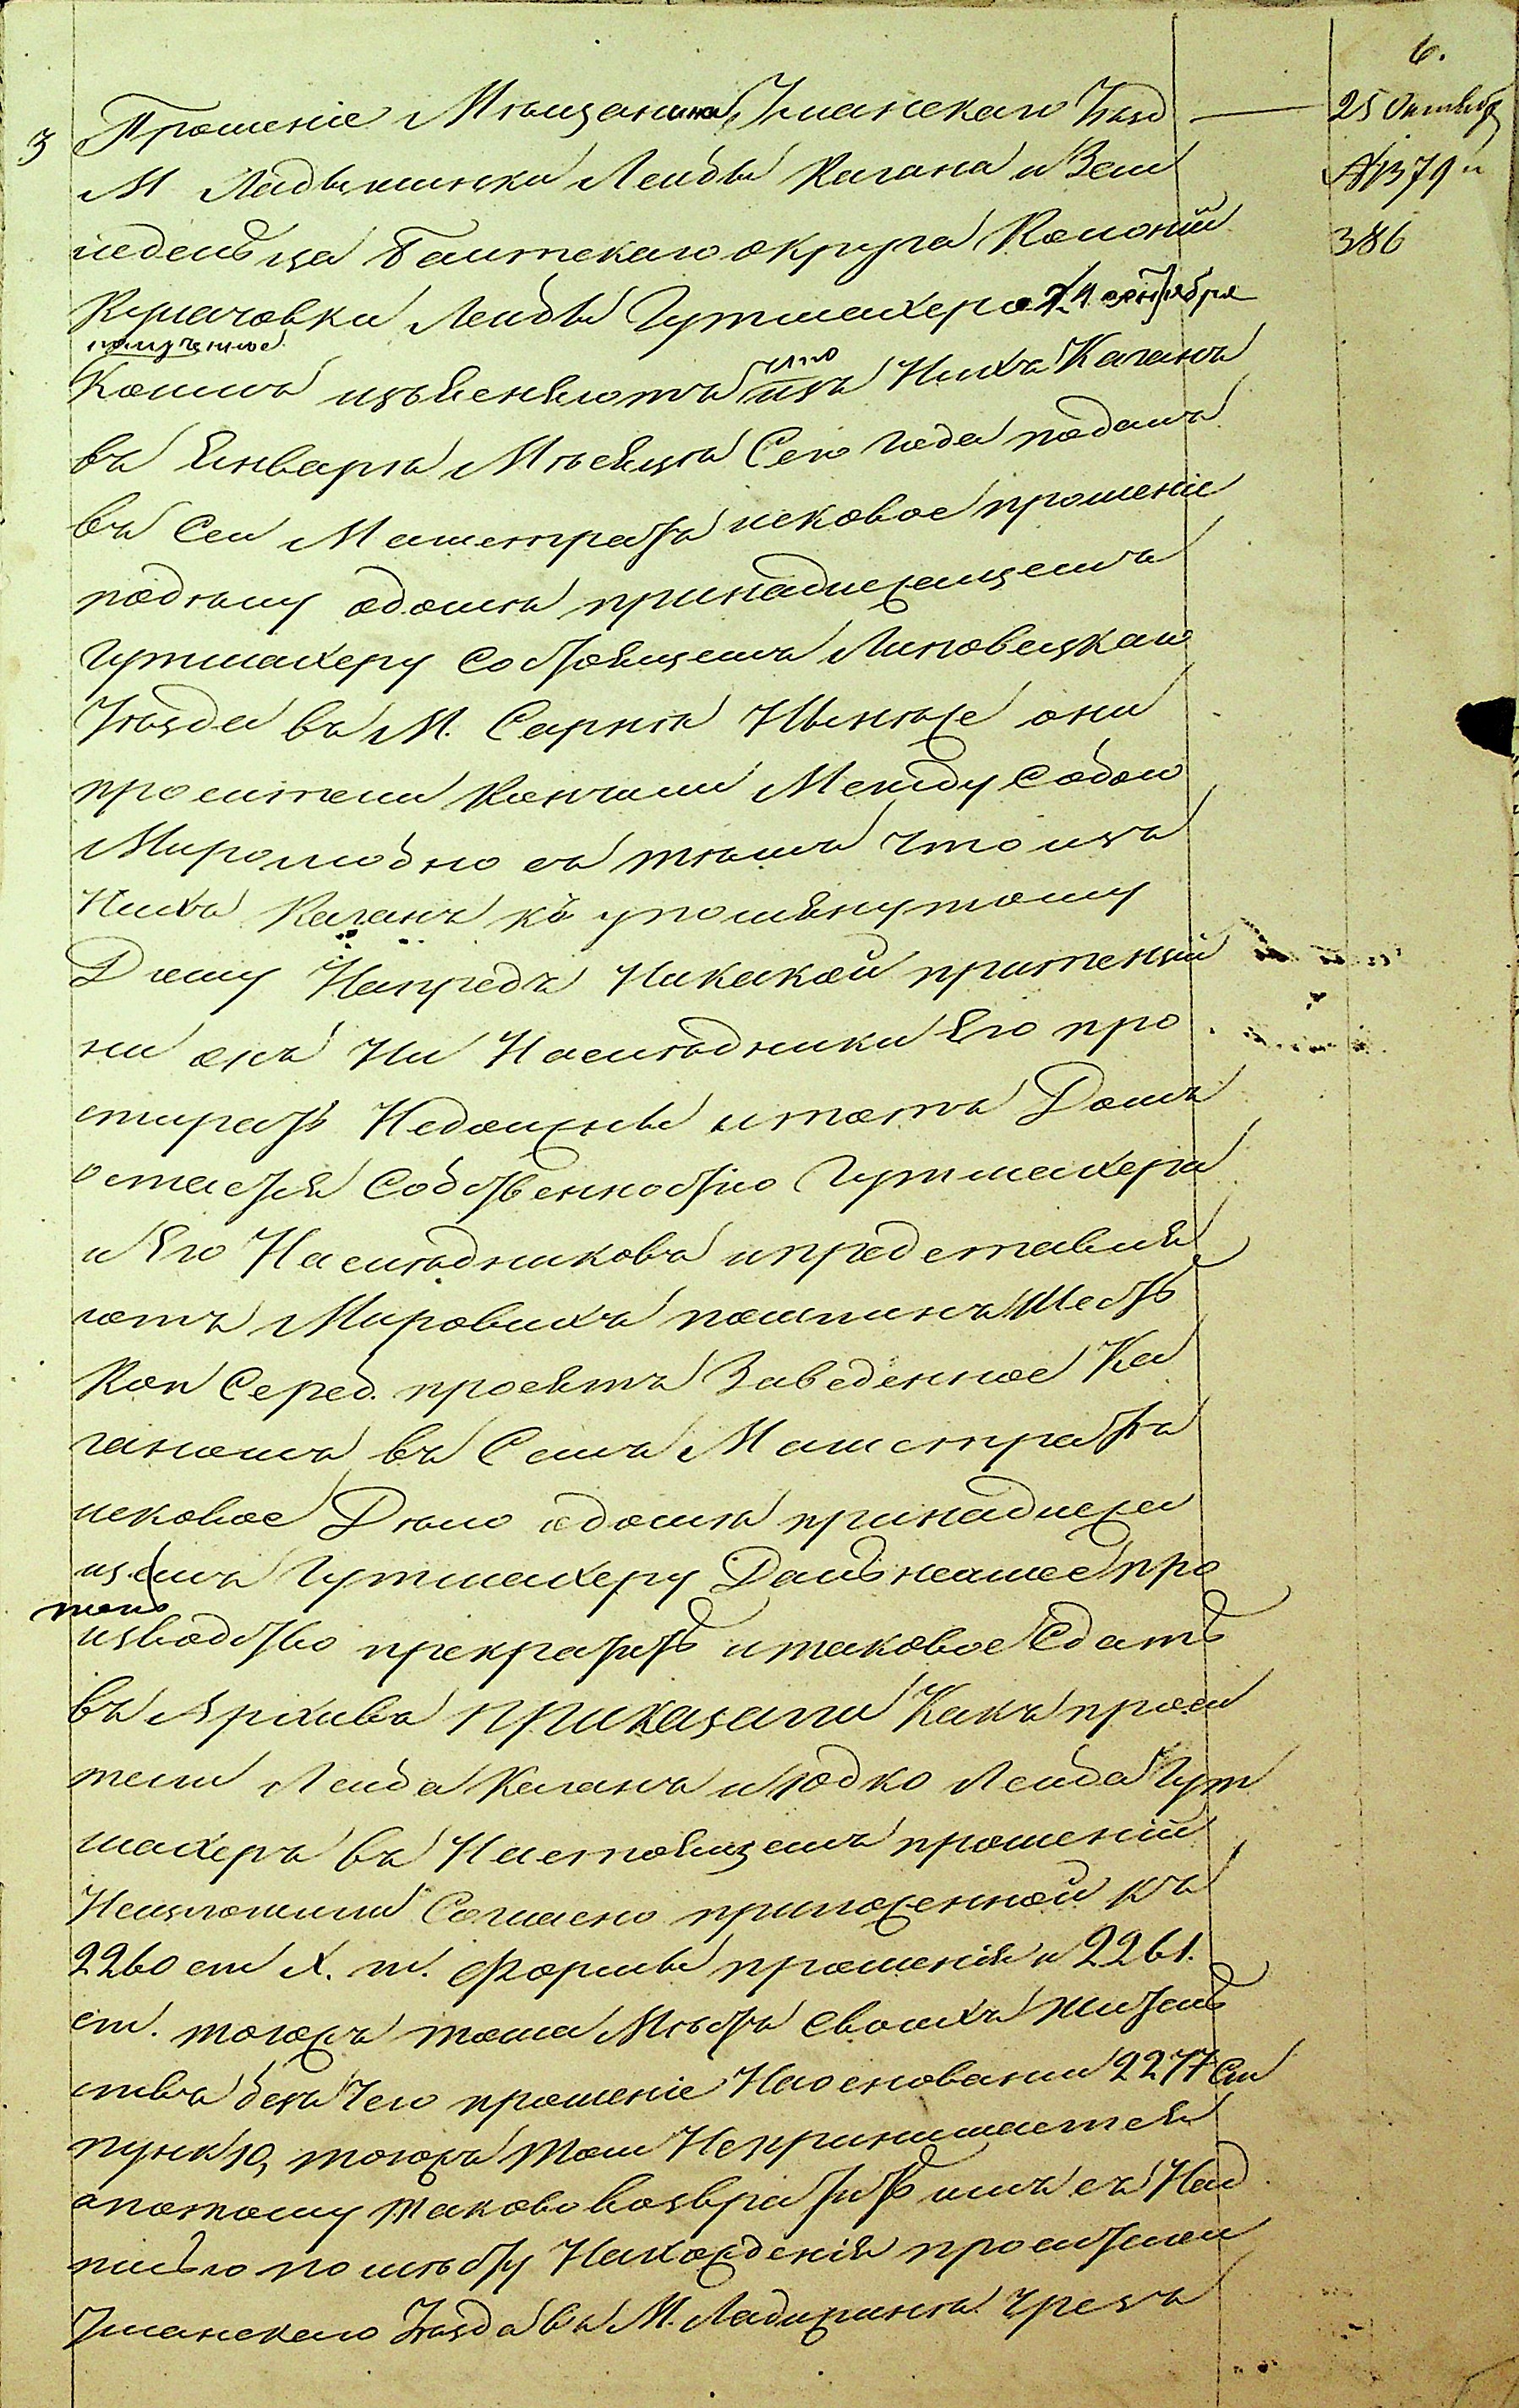 6.
3 Прошеніе Мѣщанина, Уманскаго Уѣзд
25 Октября
М Ладыжинки Лейбы Кагана и Земл
№ 379 и
ледельца Балтскаго округа Колоніи
386
Лейбы Гутмахера 24 октября
полученное
что
Коимъ изъясняютъ изъ Нихъ Каганъ
въ Январѣ Мѣсяцѣ Сего года подалъ
въ Сей Магистратъ исковое прошеніе
по дѣлу одомѣ принадлежащемъ
Гутмахеру Состоящемъ Липовецкаго
Уѣзда въ М. Сарнѣ Нынѣже они
просители Кончили Между Собою
Миролюбно съ тѣмъ Что изъ
Нихъ Каганъ къ упомянутому
Дому Напредъ Никакой притензіи
ни онъ Ни Наслѣдники Его про
стирать Недолжны итотъ Домъ
остается Собственностію Гутмахера
и Его Наслѣдниковъ ипредставля
ютъ Мировыхъ пошлинъ Шесть
Коп Серед. просятъ Заведенное Ка
ганомъ въ Семъ Магистратѣ
исковое Дѣло одомѣ принадлежа
щемъ Гутмахеру Дальнейшее про
изводство прекратить итаковое Сдать
въ Архивъ приказали Какъ проси
тели Лейба Каганъ и Юдко Лейба Гут
махеръ въ Настоящемъ прошеніи
Неизложили Согласно приложенной къ
2260 ст X. т. Формы прошенія и 2261.
ст. тогожъ тома Мѣстъ Своихъ Житель
ствъ безъ Чего прошеніе Наоснованіи 2277 Ст
пунк 10, тогожъ Том Непринимается
апотому Таково возвратить имъ съ Над
писью по мѣсту Нахожденія просителей
Уманскаго Уѣзда въ М. Ладыжинкѣ Чрезъ